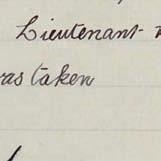 Lieutenant
was taken